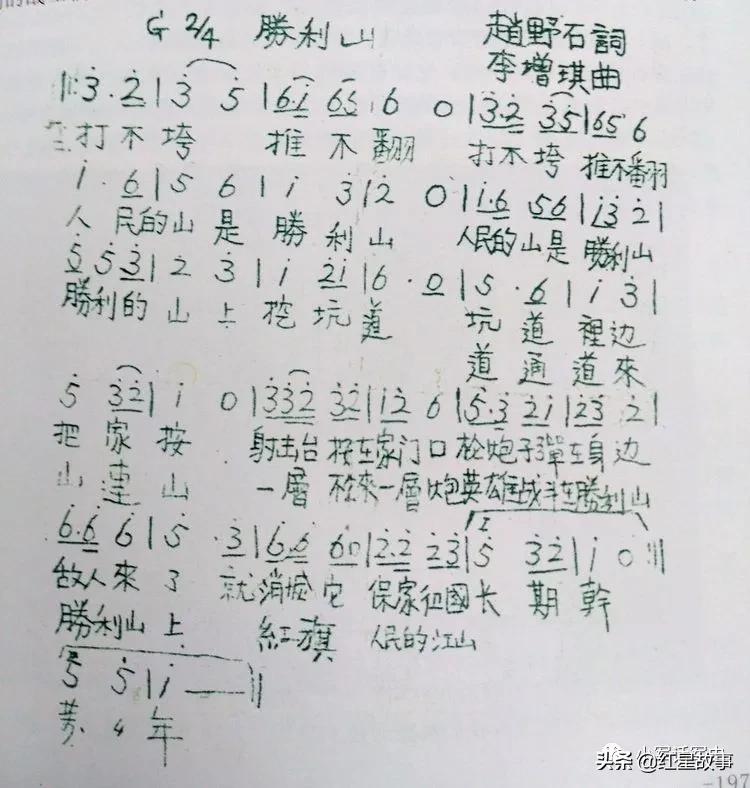 G 2/4 勝利山
趙野石詞
李增琪曲
|: 3 . 2 | 3 5 | 6 i 6 5 6 0 | 3 . 2 3 5 | 6 5 6
打不垮 推不翻 打不垮 推不翻
i . 6 | 5 6 | i 3 | 2 0 | i . 6 5 6 | i 3 2 |
人民的山是勝利山 人民的山是勝利山
5 5 3 | 2 3 | i 2 i | 6 . 0 | 5 . 6 | i 3 |
勝利的山上挖坑道 坑道裡边
道通道來
5 3 2 | i 0 | 3 3 2 3 2 | i 2 6 | 5 . 3 2 i | 2 3 2 |
把家按 射击台按在家门口 枪炮子彈在身边
山連山 一層 來一層 炮英雄战斗在勝利山
6 . 6 6 | 5 3 | 6 6 6 0 | 2 . 2 2 3 | 5 3 2 | i 0 :||
敌人來了就消灭它 保家祖國长期幹
勝利山上 紅旗 人民的江山
5 5 | i — ||
年
头条 @红星故事
-197